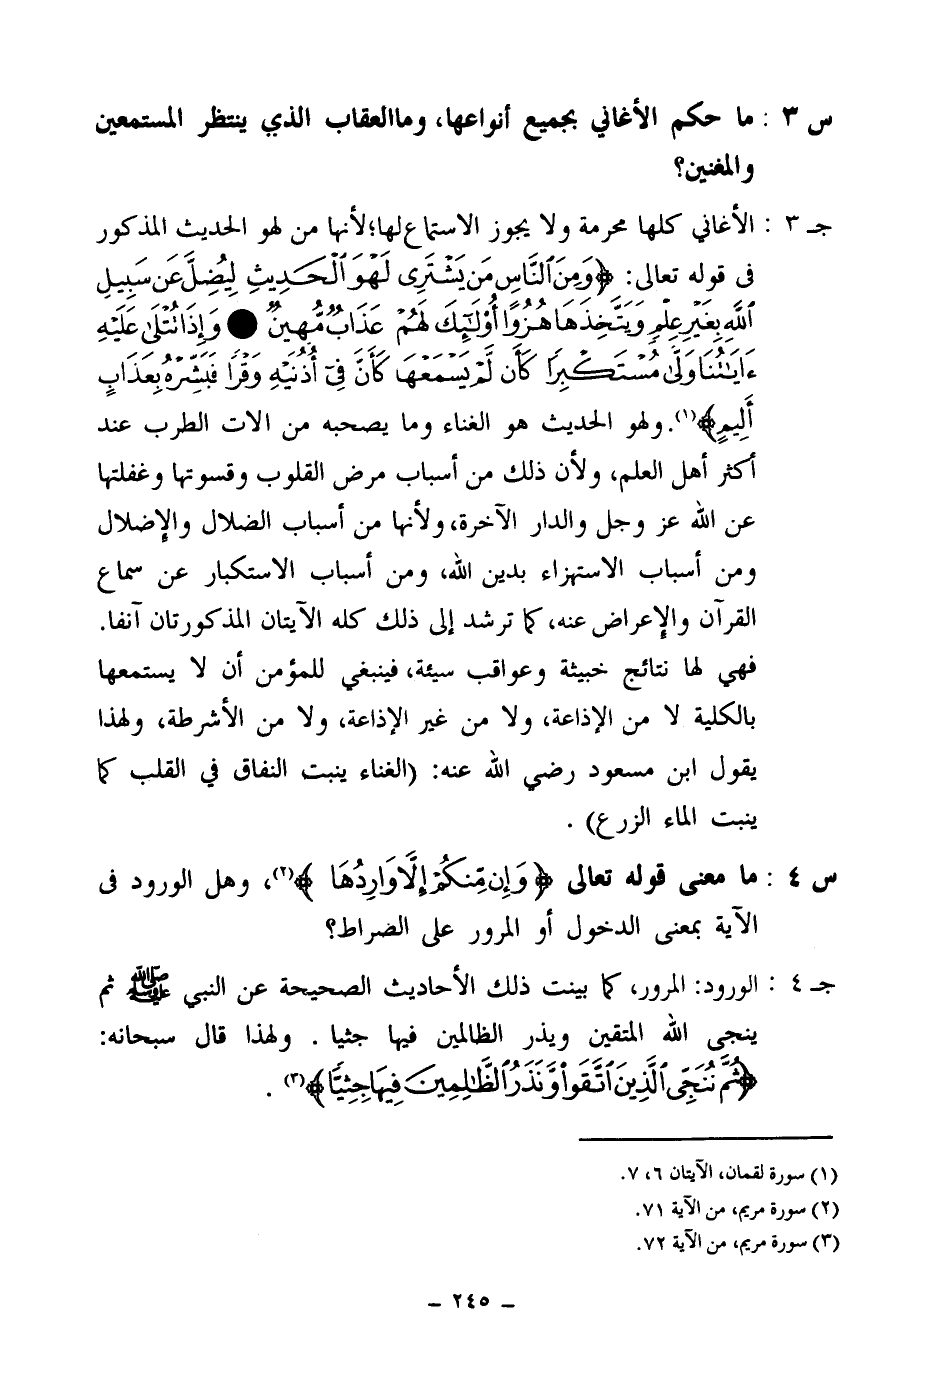 س ٣ : ما حكم الأغاني بجميع أنواعها، وماالعقاب الذي ينتظر المستمعين
والمغنين؟
جـ ٣ : الأغاني كلها محرمة ولا يجوز الاستماع لها؛ لأنها من لهو الحديث المذكور
فى قوله تعالى: ﴿وَمِنَ ٱلنَّاسِ مَن يَشْتَرِى لَهْوَ ٱلْحَدِيثِ لِيُضِلَّ عَن سَبِيلِ
ٱللَّهِ بِغَيْرِ عِلْمٍ وَيَتَّخِذَهَا هُزُوًا أُوْلَٰٓئِكَ لَهُمْ عَذَابٌ مُّهِينٌ ● وَإِذَا تُتْلَىٰ عَلَيْهِ
ءَايَٰتُنَا وَلَّىٰ مُسْتَكْبِرًا كَأَن لَّمْ يَسْمَعْهَا كَأَنَّ فِىٓ أُذُنَيْهِ وَقْرًا فَبَشِّرْهُ بِعَذَابٍ
أَلِيمٍ﴾(١). ولهو الحديث هو الغناء وما يصحبه من الات الطرب عند
أكثر أهل العلم، ولأن ذلك من أسباب مرض القلوب وقسوتها وغفلتها
عن الله عز وجل والدار الآخرة، ولأنها من أسباب الضلال والإضلال
ومن أسباب الاستهزاء بدين الله، ومن أسباب الاستكبار عن سماع
القرآن والإعراض عنه، كما ترشد إلى ذلك كله الآيتان المذكورتان آنفا.
فهي لها نتائج خبيثة وعواقب سيئة، فينبغي للمؤمن أن لا يستمعها
بالكلية لا من الإذاعة، ولا من غير الإذاعة، ولا من الأشرطة، ولهذا
يقول ابن مسعود رضي الله عنه: (الغناء ينبت النفاق في القلب كما
ينبت الماء الزرع) .
س ٤ : ما معنى قوله تعالى ﴿وَإِن مِّنكُمْ إِلَّا وَارِدُهَا﴾(٢)، وهل الورود فى
الآية بمعنى الدخول أو المرور على الضراط؟
جـ ٤ : الورود: المرور، كما بينت ذلك الأحاديث الصحيحة عن النبي ﷺ ثم
ينجى الله المتقين ويذر الظالمين فيها جثيا . ولهذا قال سبحانه:
﴿ثُمَّ نُنَجِّى ٱلَّذِينَ ٱتَّقَوا۟ وَّنَذَرُ ٱلظَّٰلِمِينَ فِيهَا جِثِيًّا﴾(٣) .
(١) سورة لقمان، الآيتان ٦، ٧.
(٢) سورة مريم، من الآية ٧١.
(٣) سورة مريم، من الآية ٧٢.
– ٢٤٥ –